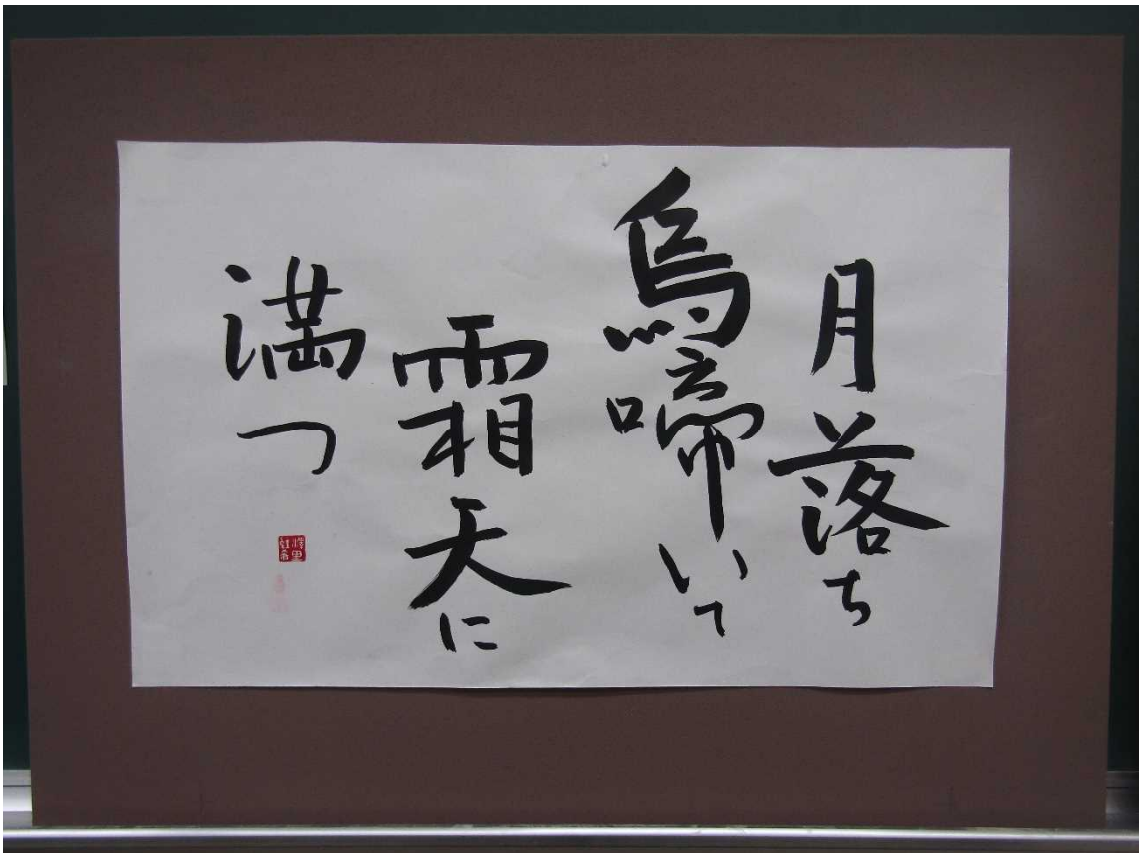 月落ち
烏啼いて
霜天に
満つ